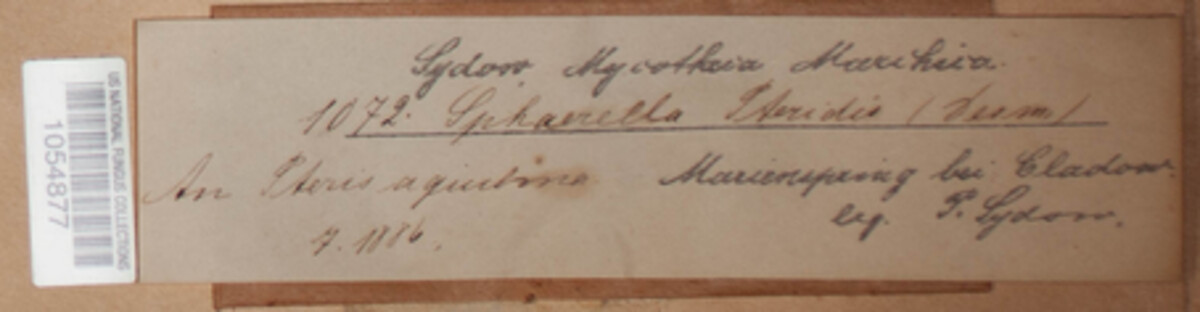 US NATIONAL FUNGUS COLLECTIONS
1054877
Sydow Mycotheca Marchica.
1072. Sphaerella Pteridis (Desm)
An Pteris aquilina Marienspring bei Cladow.
7. 1886. leg. P. Sydow.